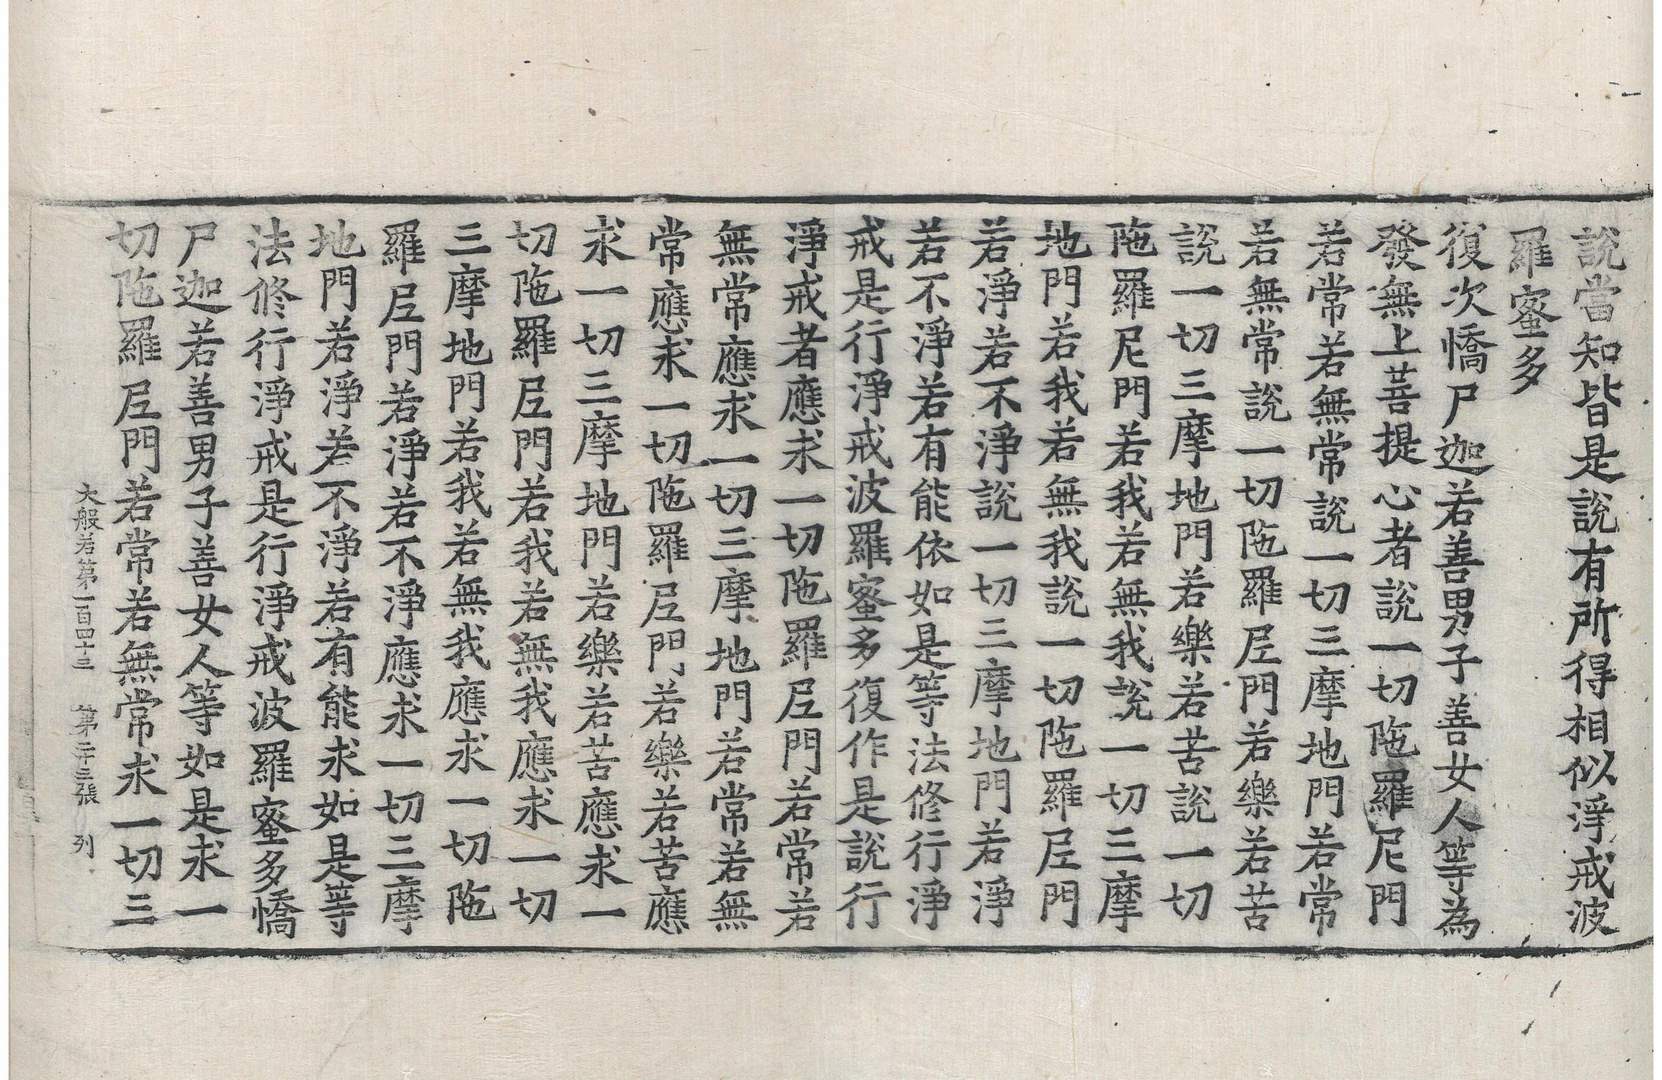 說當知皆是說有所得相似淨戒波
羅蜜多
復次憍尸迦若善男子善女人等為
發無上菩提心者說一切陁羅尼門
若常若無常說一切三摩地門若常
若無常說一切陁羅尼門若樂若苦
說一切三摩地門若樂若苦說一切
陁羅尼門若我若無我說一切三摩
地門若我若無我說一切陁羅尼門
若淨若不淨說一切三摩地門若淨
若不淨若有能依如是等法修行淨
戒是行淨戒波羅蜜多復作是說行
淨戒者應求一切陁羅尼門若常若
無常應求一切三摩地門若常若無
常應求一切陁羅尼門若樂若苦應
求一切三摩地門若樂若苦應求一
切陁羅尼門若我若無我應求一切
三摩地門若我若無我應求一切陁
羅尼門若淨若不淨應求一切三摩
地門若淨若不淨若有能求如是等
法修行淨戒是行淨戒波羅蜜多憍
尸迦若善男子善女人等如是求一
切陁羅尼門若常若無常求一切三
大般若第一百四十三 第二十三張 列